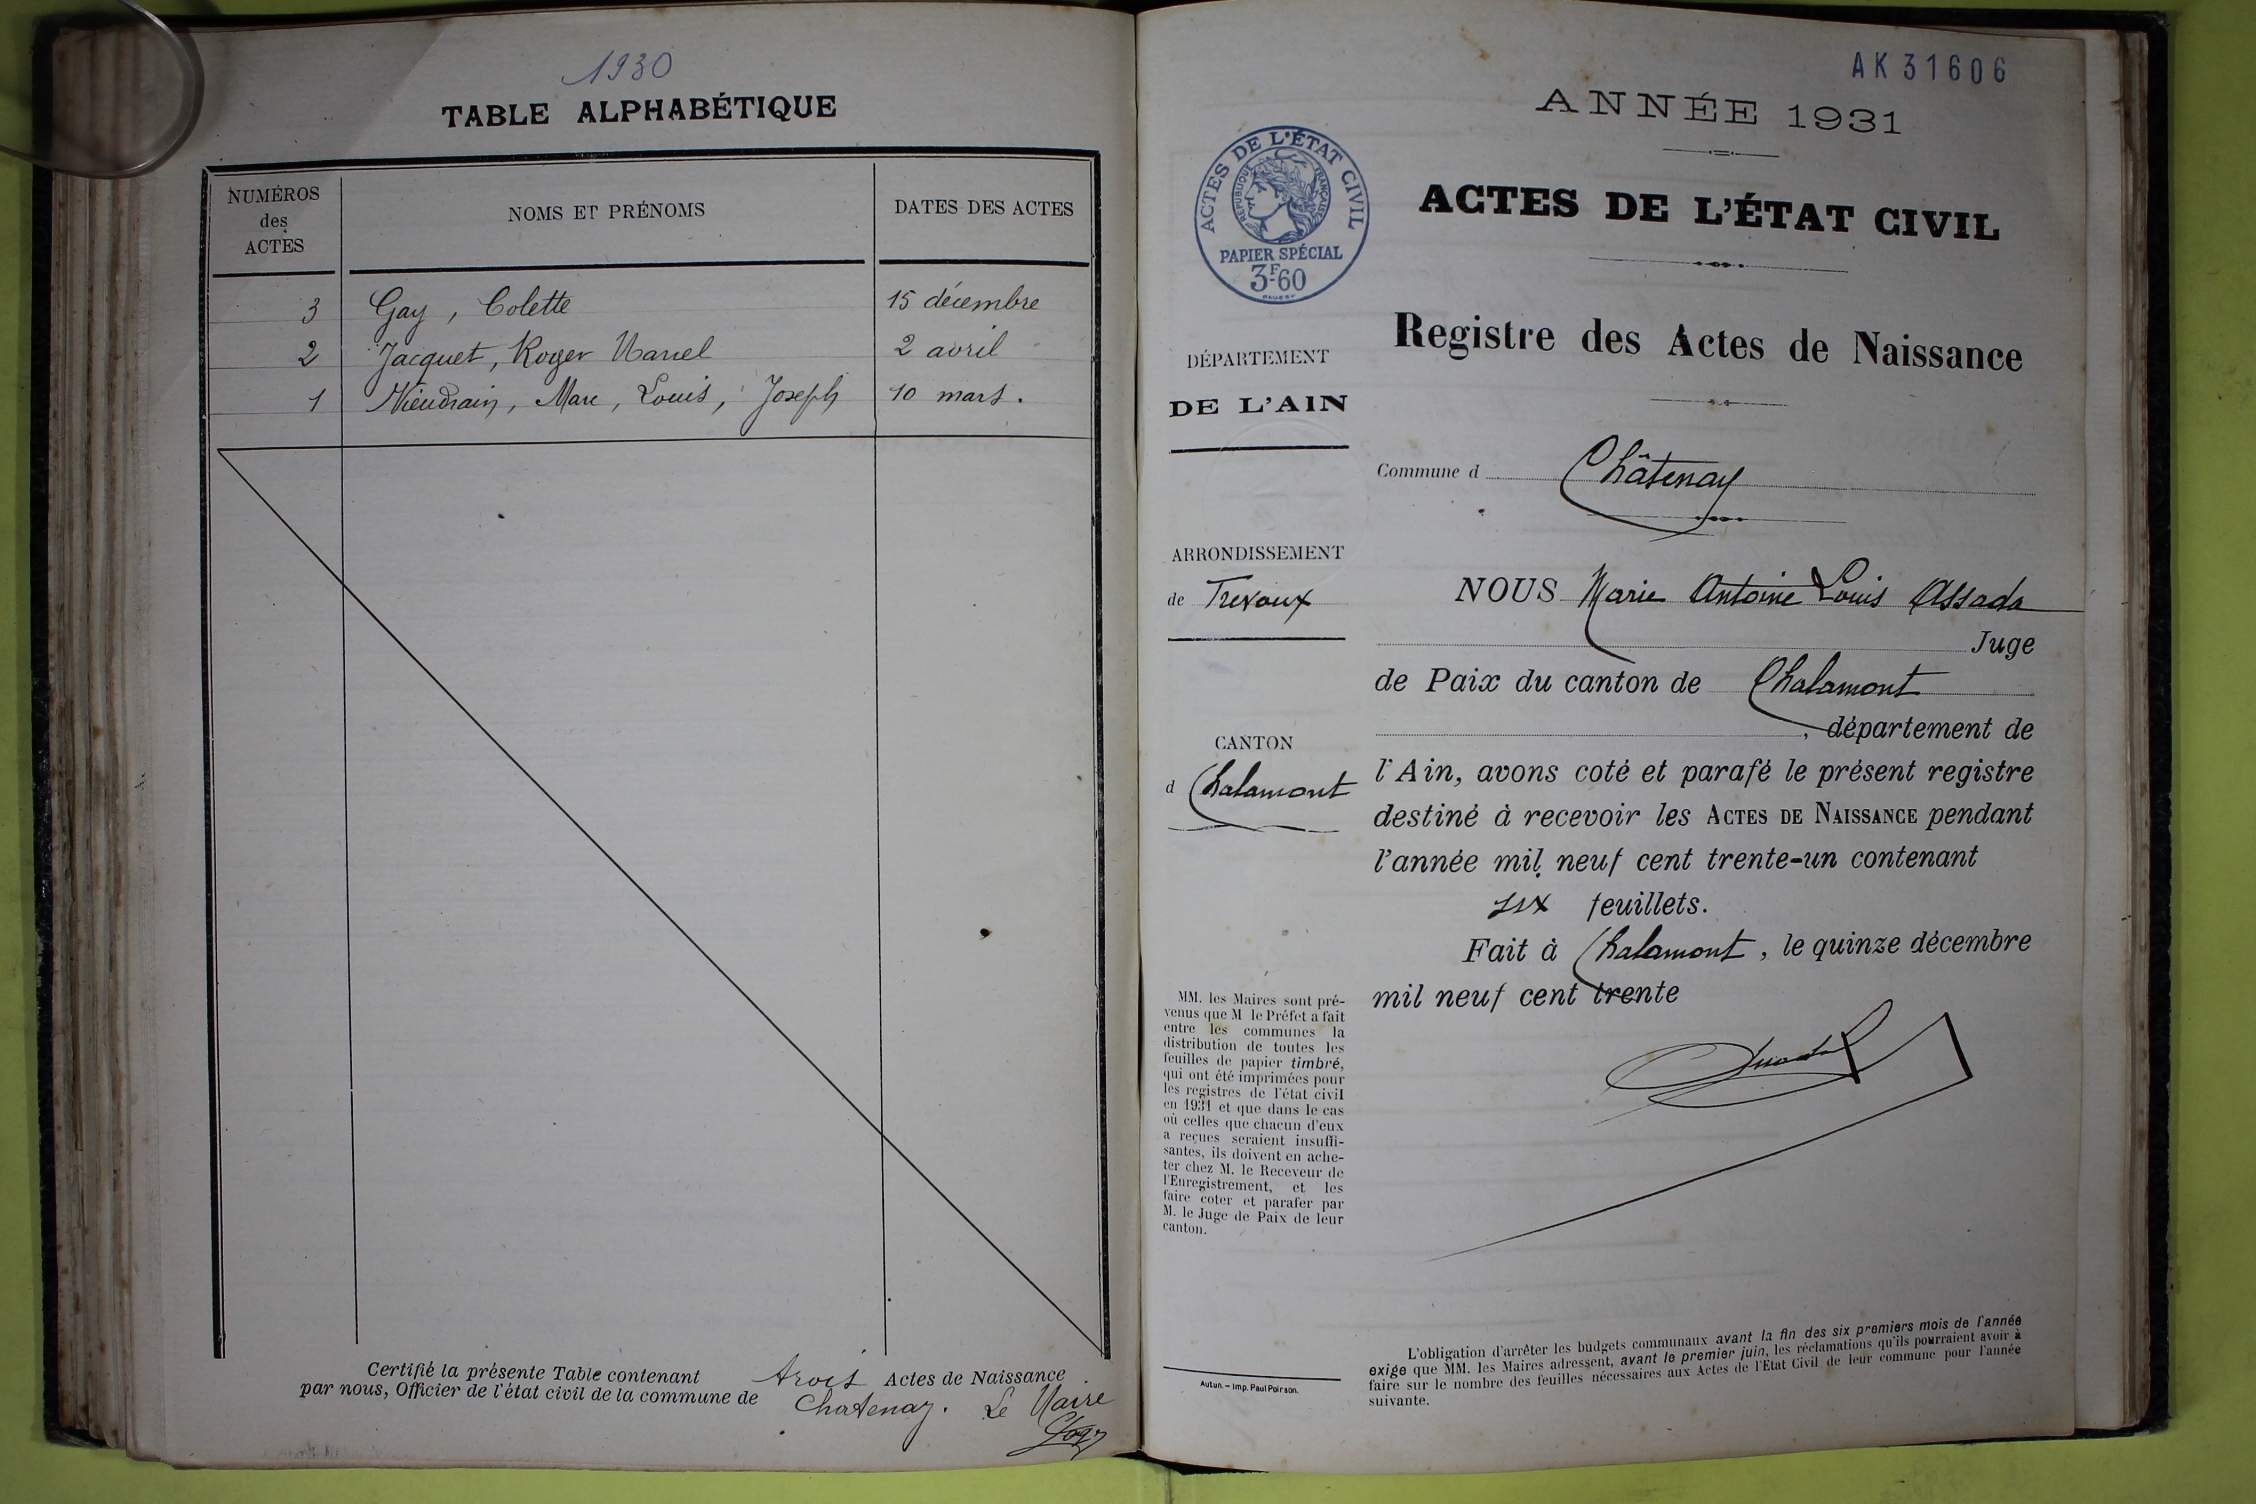 1930
TABLE ALPHABÉTIQUE
NUMÉROS
des
ACTES
NOMS ET PRÉNOMS
DATES DES ACTES
3 Gay, Colette 15 décembre
2 Jacquet, Roger Marcel 2 avril
1 Nieudrain, Marc, Louis, Joseph 10 mars.
Certifié la présente Table contenant trois Actes de Naissance
par nous, Officier de l'état civil de la commune de Chatenay. Le Maire
AK31606
ANNÉE 1931
ACTES DE L'ÉTAT CIVIL
RÉPUBLIQUE FRANÇAISE
PAPIER SPÉCIAL
3F60
ACTES DE L'ÉTAT CIVIL
Registre des Actes de Naissance
DÉPARTEMENT
DE L'AIN
Commune d Châtenay
ARRONDISSEMENT
de Trevoux
CANTON
d Chalamont
NOUS Marie Antoine Louis Assada
Juge
de Paix du canton de Chalamont
, département de
l'Ain, avons coté et parafé le présent registre
destiné à recevoir les ACTES DE NAISSANCE pendant
l'année mil neuf cent trente-un contenant
six feuillets.
Fait à Chalamont, le quinze décembre
mil neuf cent trente
MM. les Maires sont pré-
venus que M le Préfet a fait
entre les communes la
distribution de toutes les
feuilles de papier timbré,
qui ont été imprimées pour
les registres de l'état civil
en 1931 et que dans le cas
où celles que chacun d'eux
a reçues seraient insuffi-
santes, ils doivent en ache-
ter chez M. le Receveur de
l'Enregistrement, et les
faire coter et parafer par
M. le Juge de Paix de leur
canton.
Autun. – Imp. Paul Poirson.
L'obligation d'arrêter les budgets communaux avant la fin des six premiers mois de l'année
exige que MM. les Maires adressent, avant le premier juin, les réclamations qu'ils pourraient avoir à
faire sur le nombre des feuilles nécessaires aux Actes de l'Etat Civil de leur commune pour l'année
suivante.